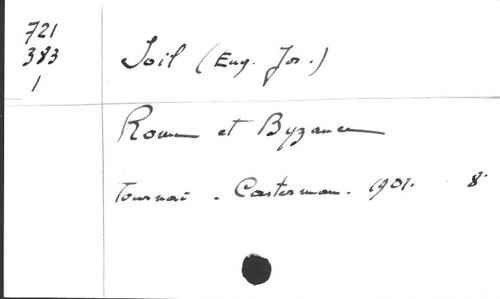 721
383
1
Soil (Eug. Jos.)
Rome et Byzance
Tournai. Casterman. 1901. 8°